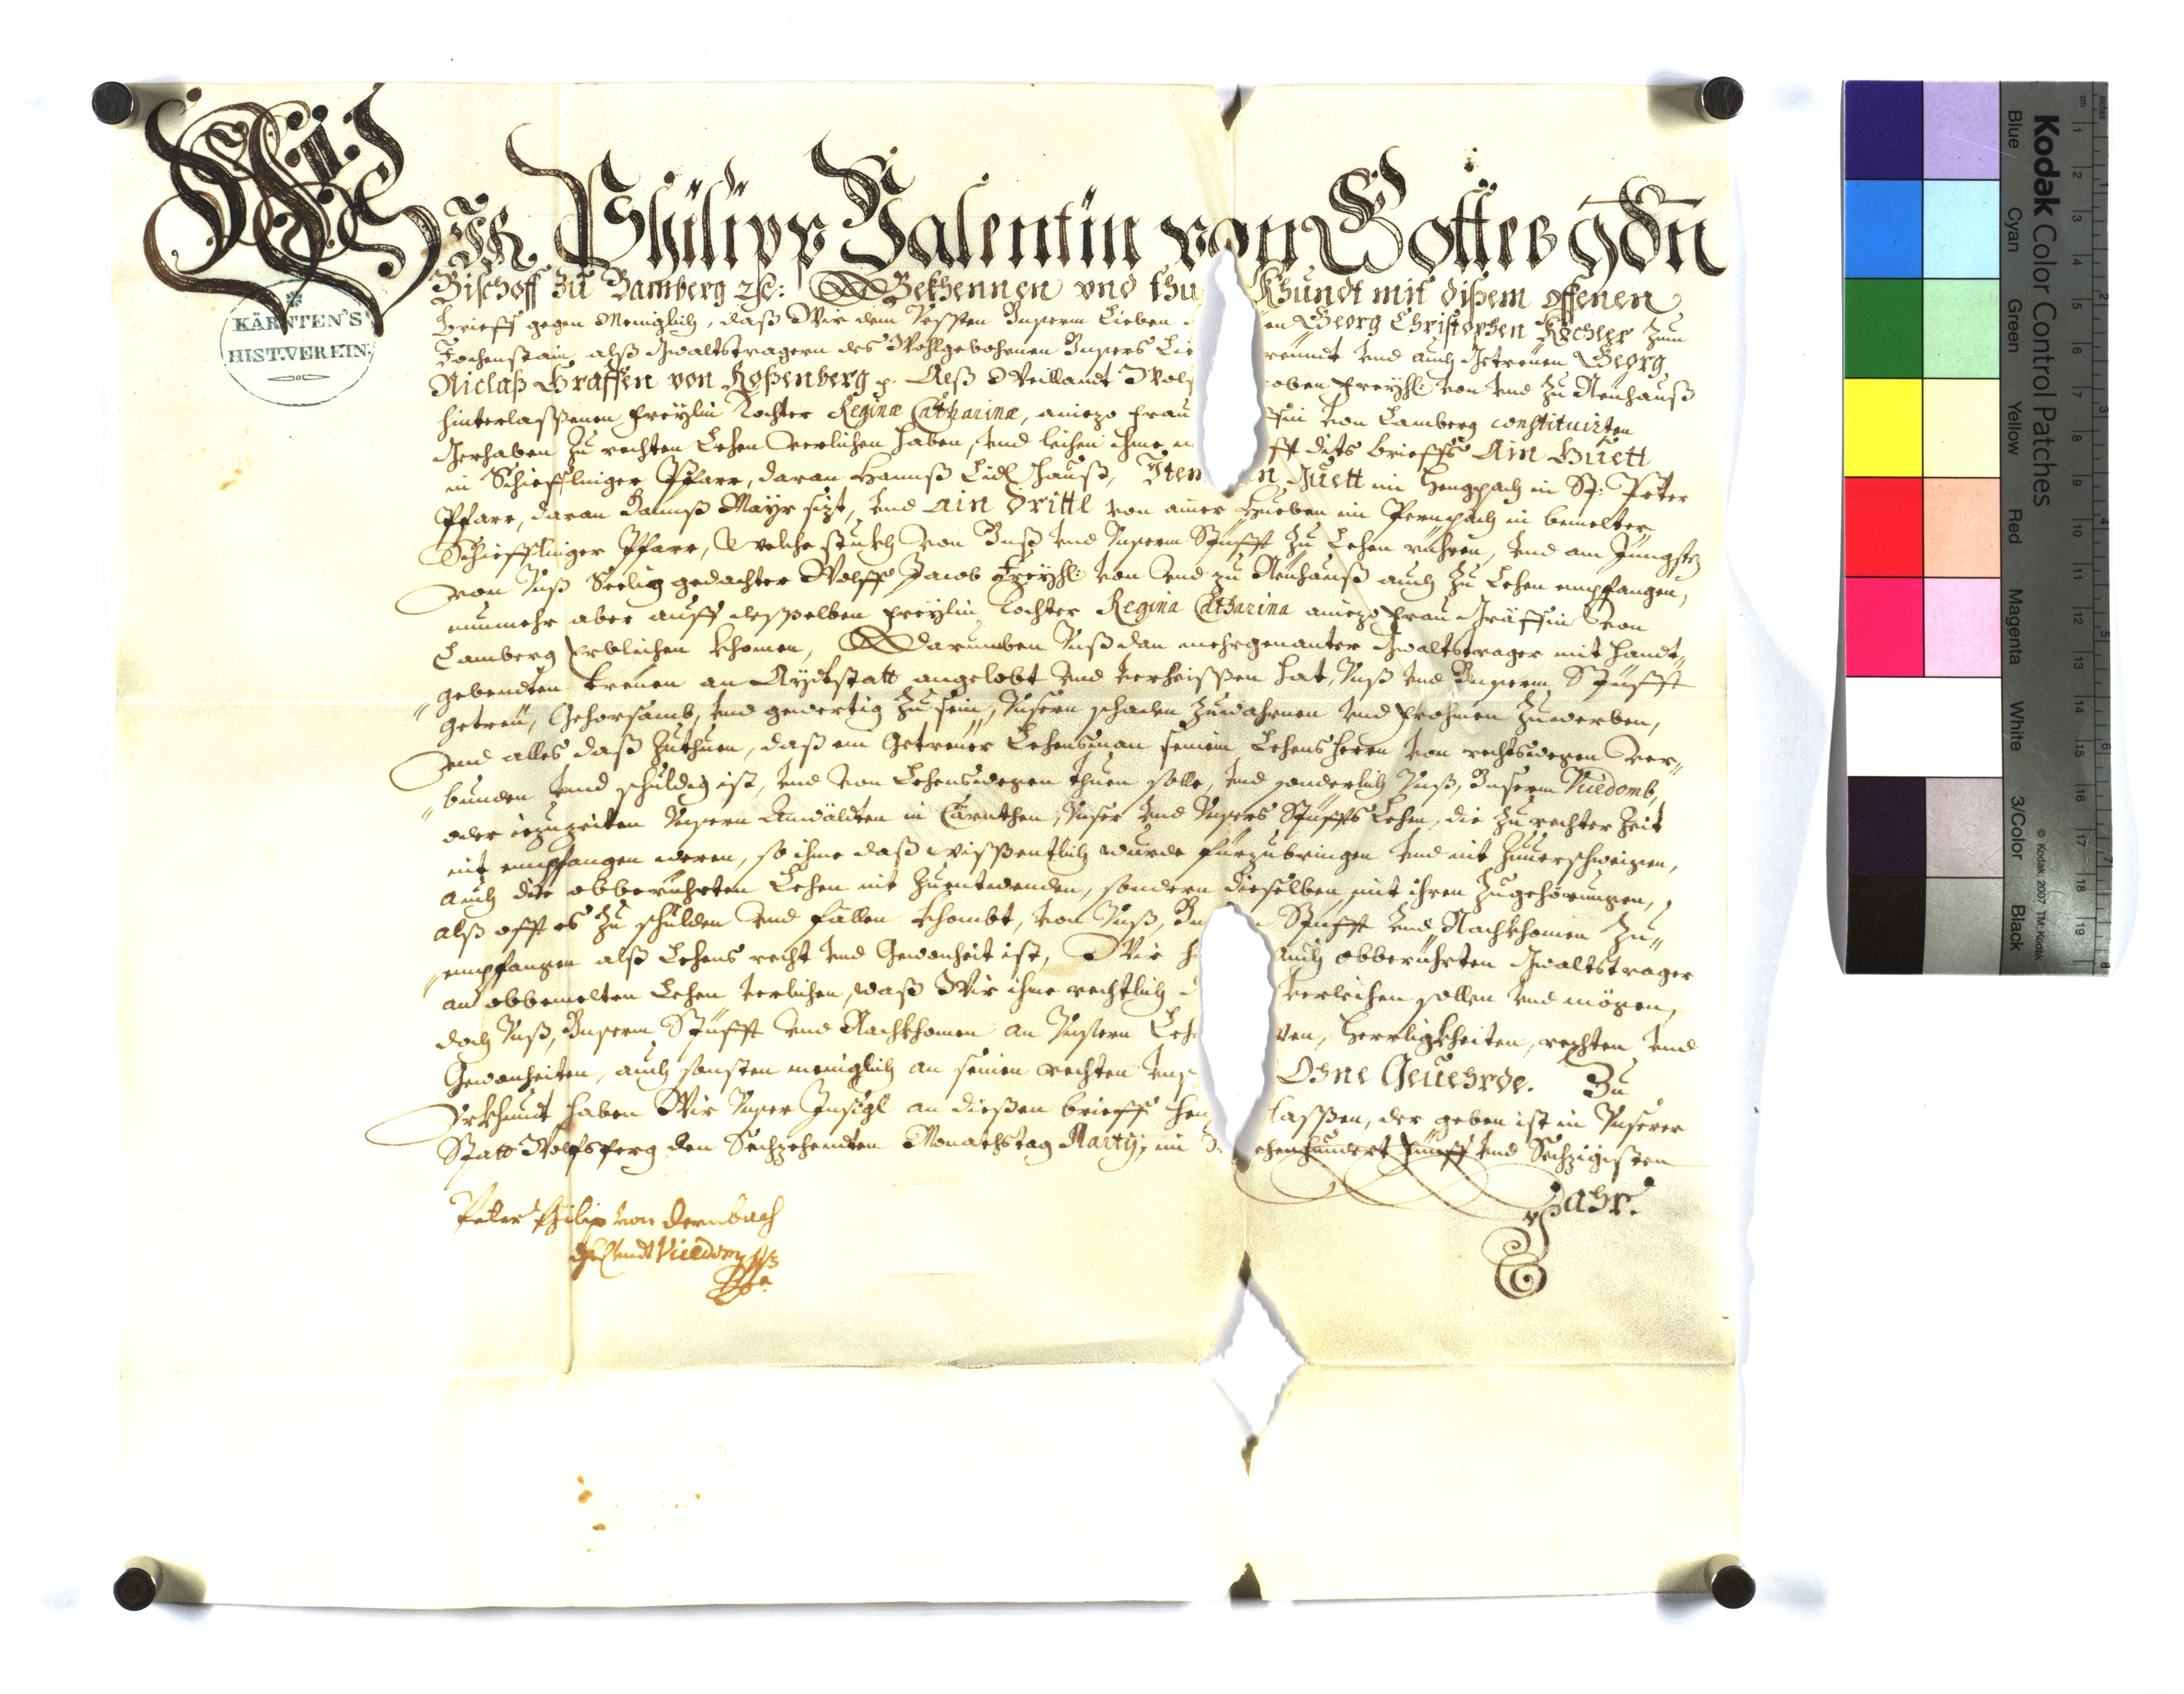 WIR Philipp Valentin von Gottes gdn
Bischoff zu Bamberg etc: Bekhennen vnd thu Khundt mit dißem offenen
Brieff gegen Meniglich, daß Wir dem Vessten Vnserm Lieben en Georg Christophen Kocher zum
KÄRNTEN'S
HIST. VEREIN.
alß Gwaltstragern des Wohlgebohrnen Vnsers Lie freundt vnd auch Getreuen Georg
Niclaß Graffen von Roßenberg p. Alß Weillandt Wolf oben Freyh: von vnd zu Neuhauß
hinterlaßenen Freylin Tochter Reginæ Catharinæ, aniezo Frau fin von Lamberg constituirten
Gerhaben zu rechten Lehen verlichen haben, vnd leihen ihme fft dits brieffs Ain Guett
in Schiefflinger Pfarr, daran Hannß Hauß, Item n Guett im in St: Peter
Pfarr, daran Hannß Mayr sizt, vnd ain drittl von ainer Hueben im in bemelter
Schiefflinger Pfarr, Welche stukh von Vnß vnd Vnserm Stüfft zu Lehen rühren, vnd am Jungsten
von Vnß Seelig gedachter Wolff Jacob Freyh: von vnd zu Neuhauß auch zu Lehen empfangen,
nunmehr aber auff desselben Freylin Tochter Regina Catharina aniezo Frau Gräffin von
Lamberg Erblichen khomen, Darumben Vnß dan mehrgenanter Gwaltstrager mit handt
gebendten treuen an Aydtstatt angelobt vnd verheissen hat, Vnß vnd Vnserm Stüfft
getreu, Gehorsamb, vnd gewertig zu sein, Vnsern schaden zuwahrnen vnd frohmen zuwerben,
vnd alles daß zuthuen, daß ein Getreuer Lehensman seinem Lehensherrn von rechtswegen ver
bunden vnd schuldig ist, vnd von Lehenswegen thuen solle, vnd sonderlich Vnß, Vnserm Viedomb,
oder iezuzeiten Vnsern Anwäldten in Cärnthen, Vnser vnd Vnsers Stüffts Lehen, die zu rechter Zeit
nit empfangen weren, so ihme daß wissentlich wurde fürzubringen vnd nit zuuerschweigen,
auch die obberührten Lehen nit zuentwenden, sondern dieselben mit ihren zugehörungen,
alß offt es zu schulden vnd fällen khombt, von Vnß, Vn Stüfft vnd Nachkhomen zu
empfangen alß Lehens recht vnd Gewonheit ist, Wir h auch obberührten Gwaltstrager
an obbemelten Lehen verlichen, waß Wir ihme rechtlich verleihen sollen vnd mögen,
doch Vnß, Vnserm Stüfft vnd Nachkhomen an Vnsern Leh en, Herrligkheiten, rechten vnd
Gewonheiten, auch sonsten meniglich an seinen rechten vns Ohne Geuehrde. Zu
Vrkhundt haben Wir Vnser Insigl an dießen brieff hen lassen, der geben ist in Vnserer
Statt Wolfsperg den Sechzehendten Monathstag Marty, im ehenhundert Fünff vnd Sechzigisten
Jahr.
Peter Philip von Dernbach
Viedomb